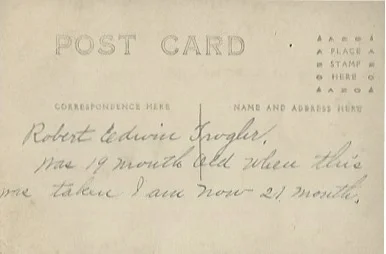 POST CARD
PLACE
STAMP
HERE
CORRESPONDENCE HERE
NAME AND ADDRESS HERE
Robert Edwin
was 19 month old when this
was taken I am now 21 month.